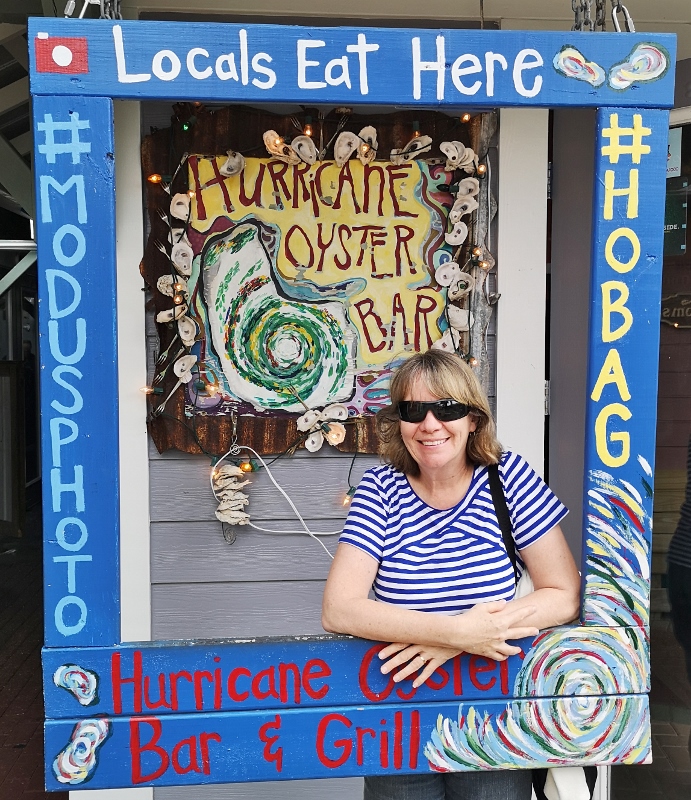 Locals Eat Here
#MODUSPHOTO
#HOBAG
HURRICANE
OYSTER
BAR
Hurricane Oyster
Bar & Grill